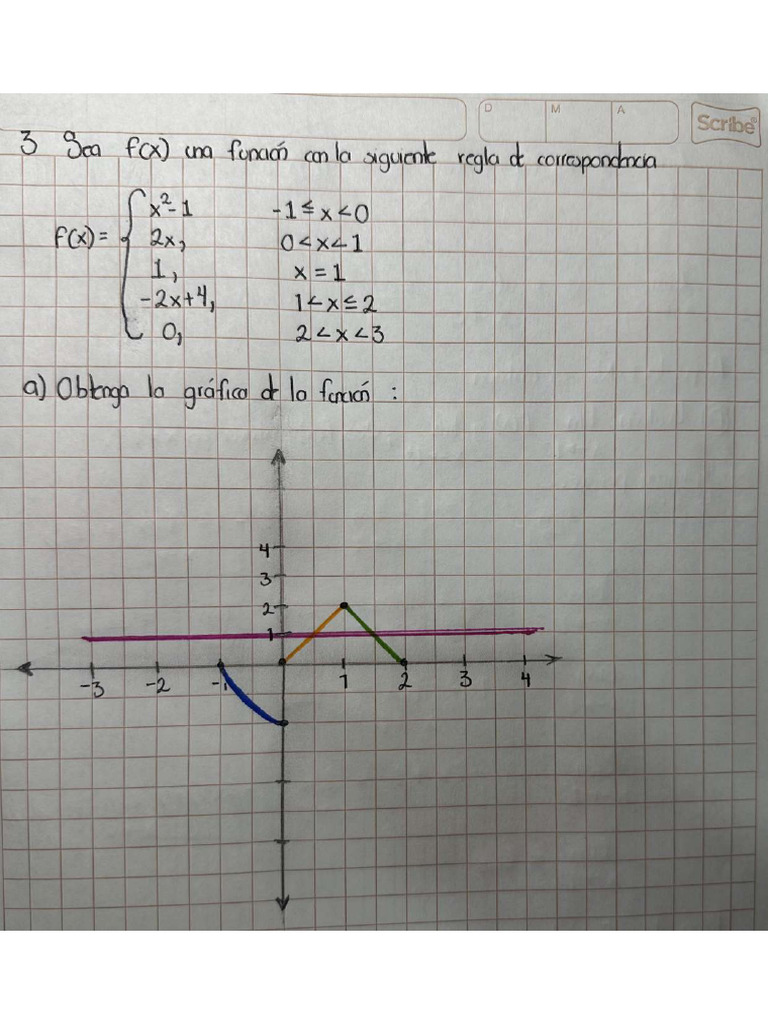 D M A Scribe
3 Sea f(x) una función con la siguiente regla de correspondencia
x²-1 -1≤x<0
f(x)= 2x, 0<x<1
1, x=1
-2x+4, 1<x≤2
0, 2<x<3
a) Obtenga la gráfica de la función :
4
3
2
1
-3 -2 -1 1 2 3 4